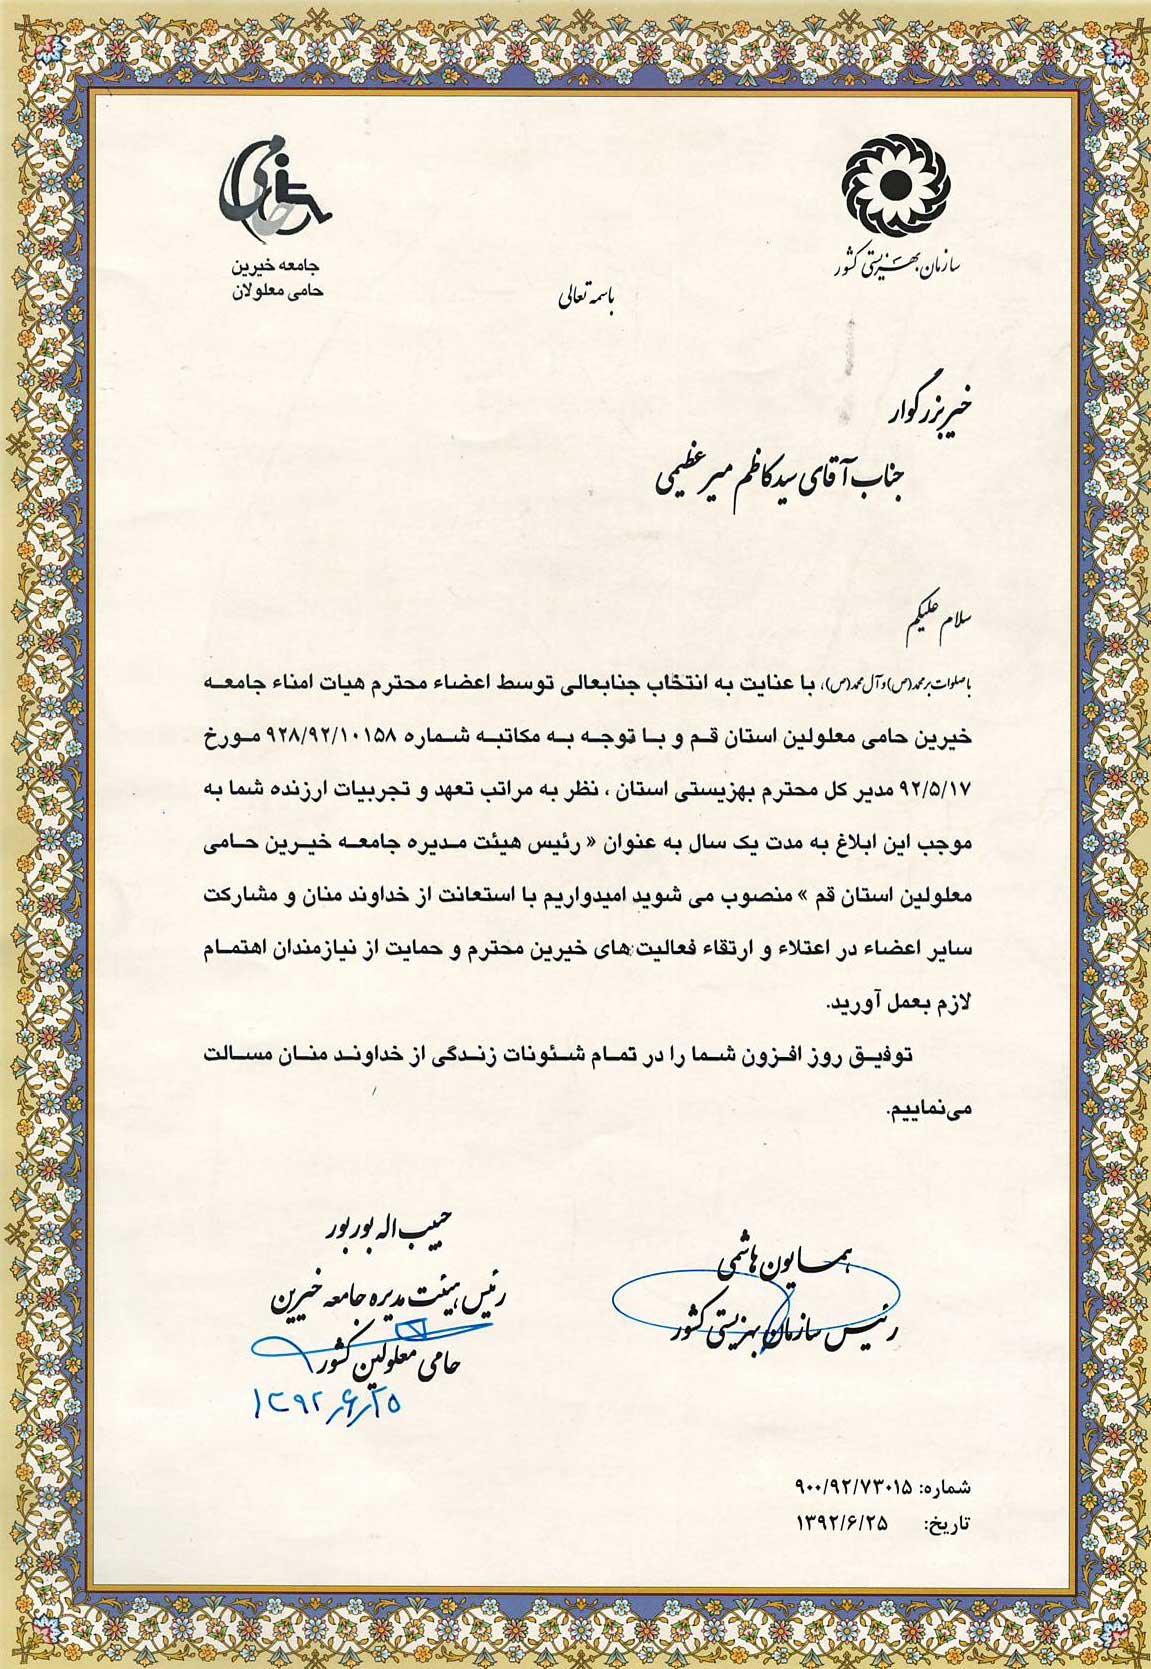 سازمان بهزیستی کشور
حامی
جامعه خیرین
حامی معلولان
باسمه تعالی
خیر بزرگوار
جناب آقای سید کاظم میر عظیمی
سلام علیکم
با صلوات بر محمد(ص) و آل محمد(ص)، با عنایت به انتخاب جنابعالی توسط اعضاء محترم هیات امناء جامعه
خیرین حامی معلولین استان قم و با توجه به مکاتبه شماره ۹۲۸/۹۲/۱۰۱۵۸ مورخ
۹۲/۵/۱۷ مدیر کل محترم بهزیستی استان ، نظر به مراتب تعهد و تجربیات ارزنده شما به
موجب این ابلاغ به مدت یک سال به عنوان « رئیس هیئت مدیره جامعه خیرین حامی
معلولین استان قم » منصوب می شوید امیدواریم با استعانت از خداوند منان و مشارکت
سایر اعضاء در اعتلاء و ارتقاء فعالیت‌های خیرین محترم و حمایت از نیازمندان اهتمام
لازم بعمل آورید.
توفیق روز افزون شما را در تمام شئونات زندگی از خداوند منان مسالت
می‌نماییم.
همایون هاشمی
رئیس سازمان بهزیستی کشور
حبیب اله بوربور
رئیس هیئت مدیره جامعه خیرین
حامی معلولین کشور
۱۳۹۲/۶/۲۵
شماره: ۹۰۰/۹۲/۷۳۰۱۵
تاریخ: ۱۳۹۲/۶/۲۵